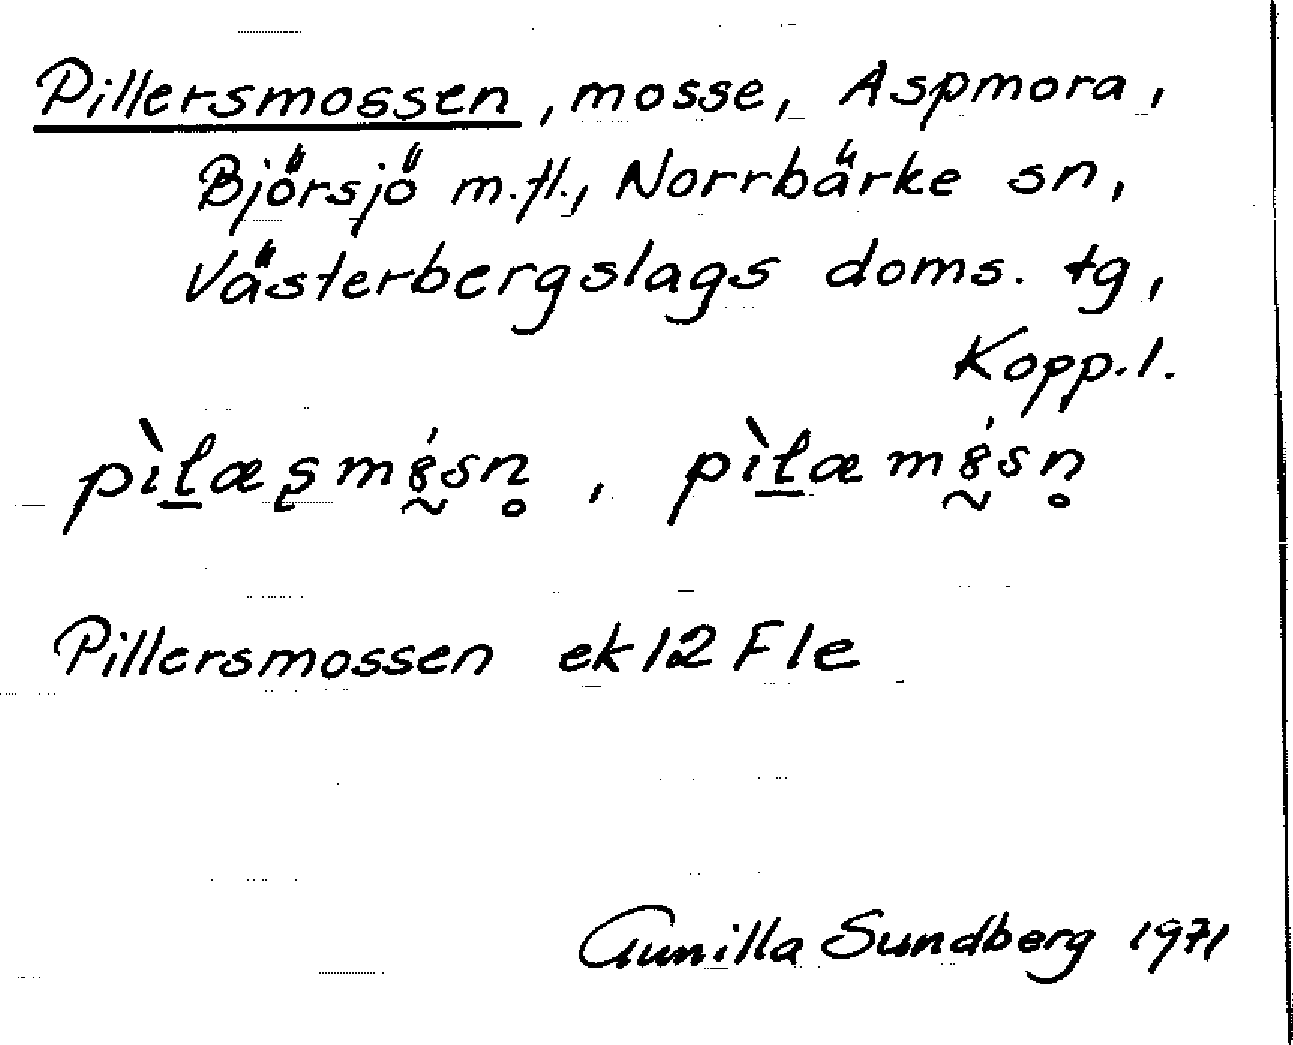 Pillersmossen, mosse, Aspmora,
Björsjö m.fl., Norrbärke sn,
Västerbergslags doms. tg,
Kopp.l.
pìḻæʂmɞ̰́sn̥, pìḻæmɞ̰́sn̥
Pillersmossen ek 12 F 1e
Gunilla Sundberg 1971